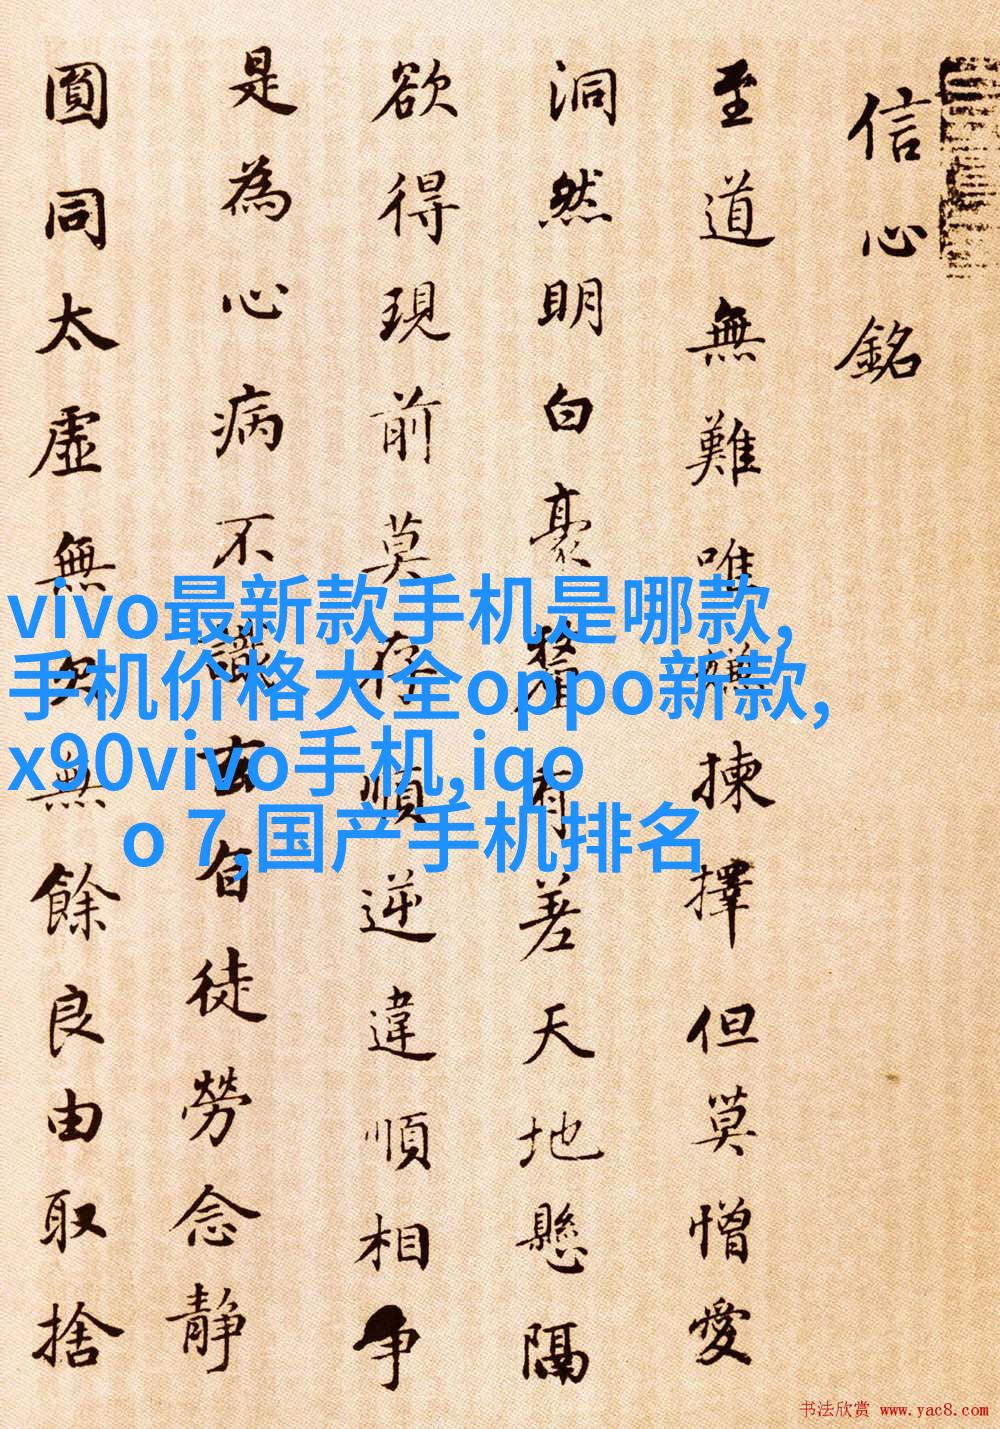 信心銘
至道無難唯嫌揀擇但莫憎愛
洞然明白豪有差天地懸隔
欲得現前莫存順逆違順相争
是為心病不識玄旨徒勞念静
圓同太虛無欠無餘良由取捨
vivo最新款手机是哪款,
手机价格大全oppo新款,
x90vivo手机,iqo
o 7,国产手机排名
书法欣赏 www.yac8.com